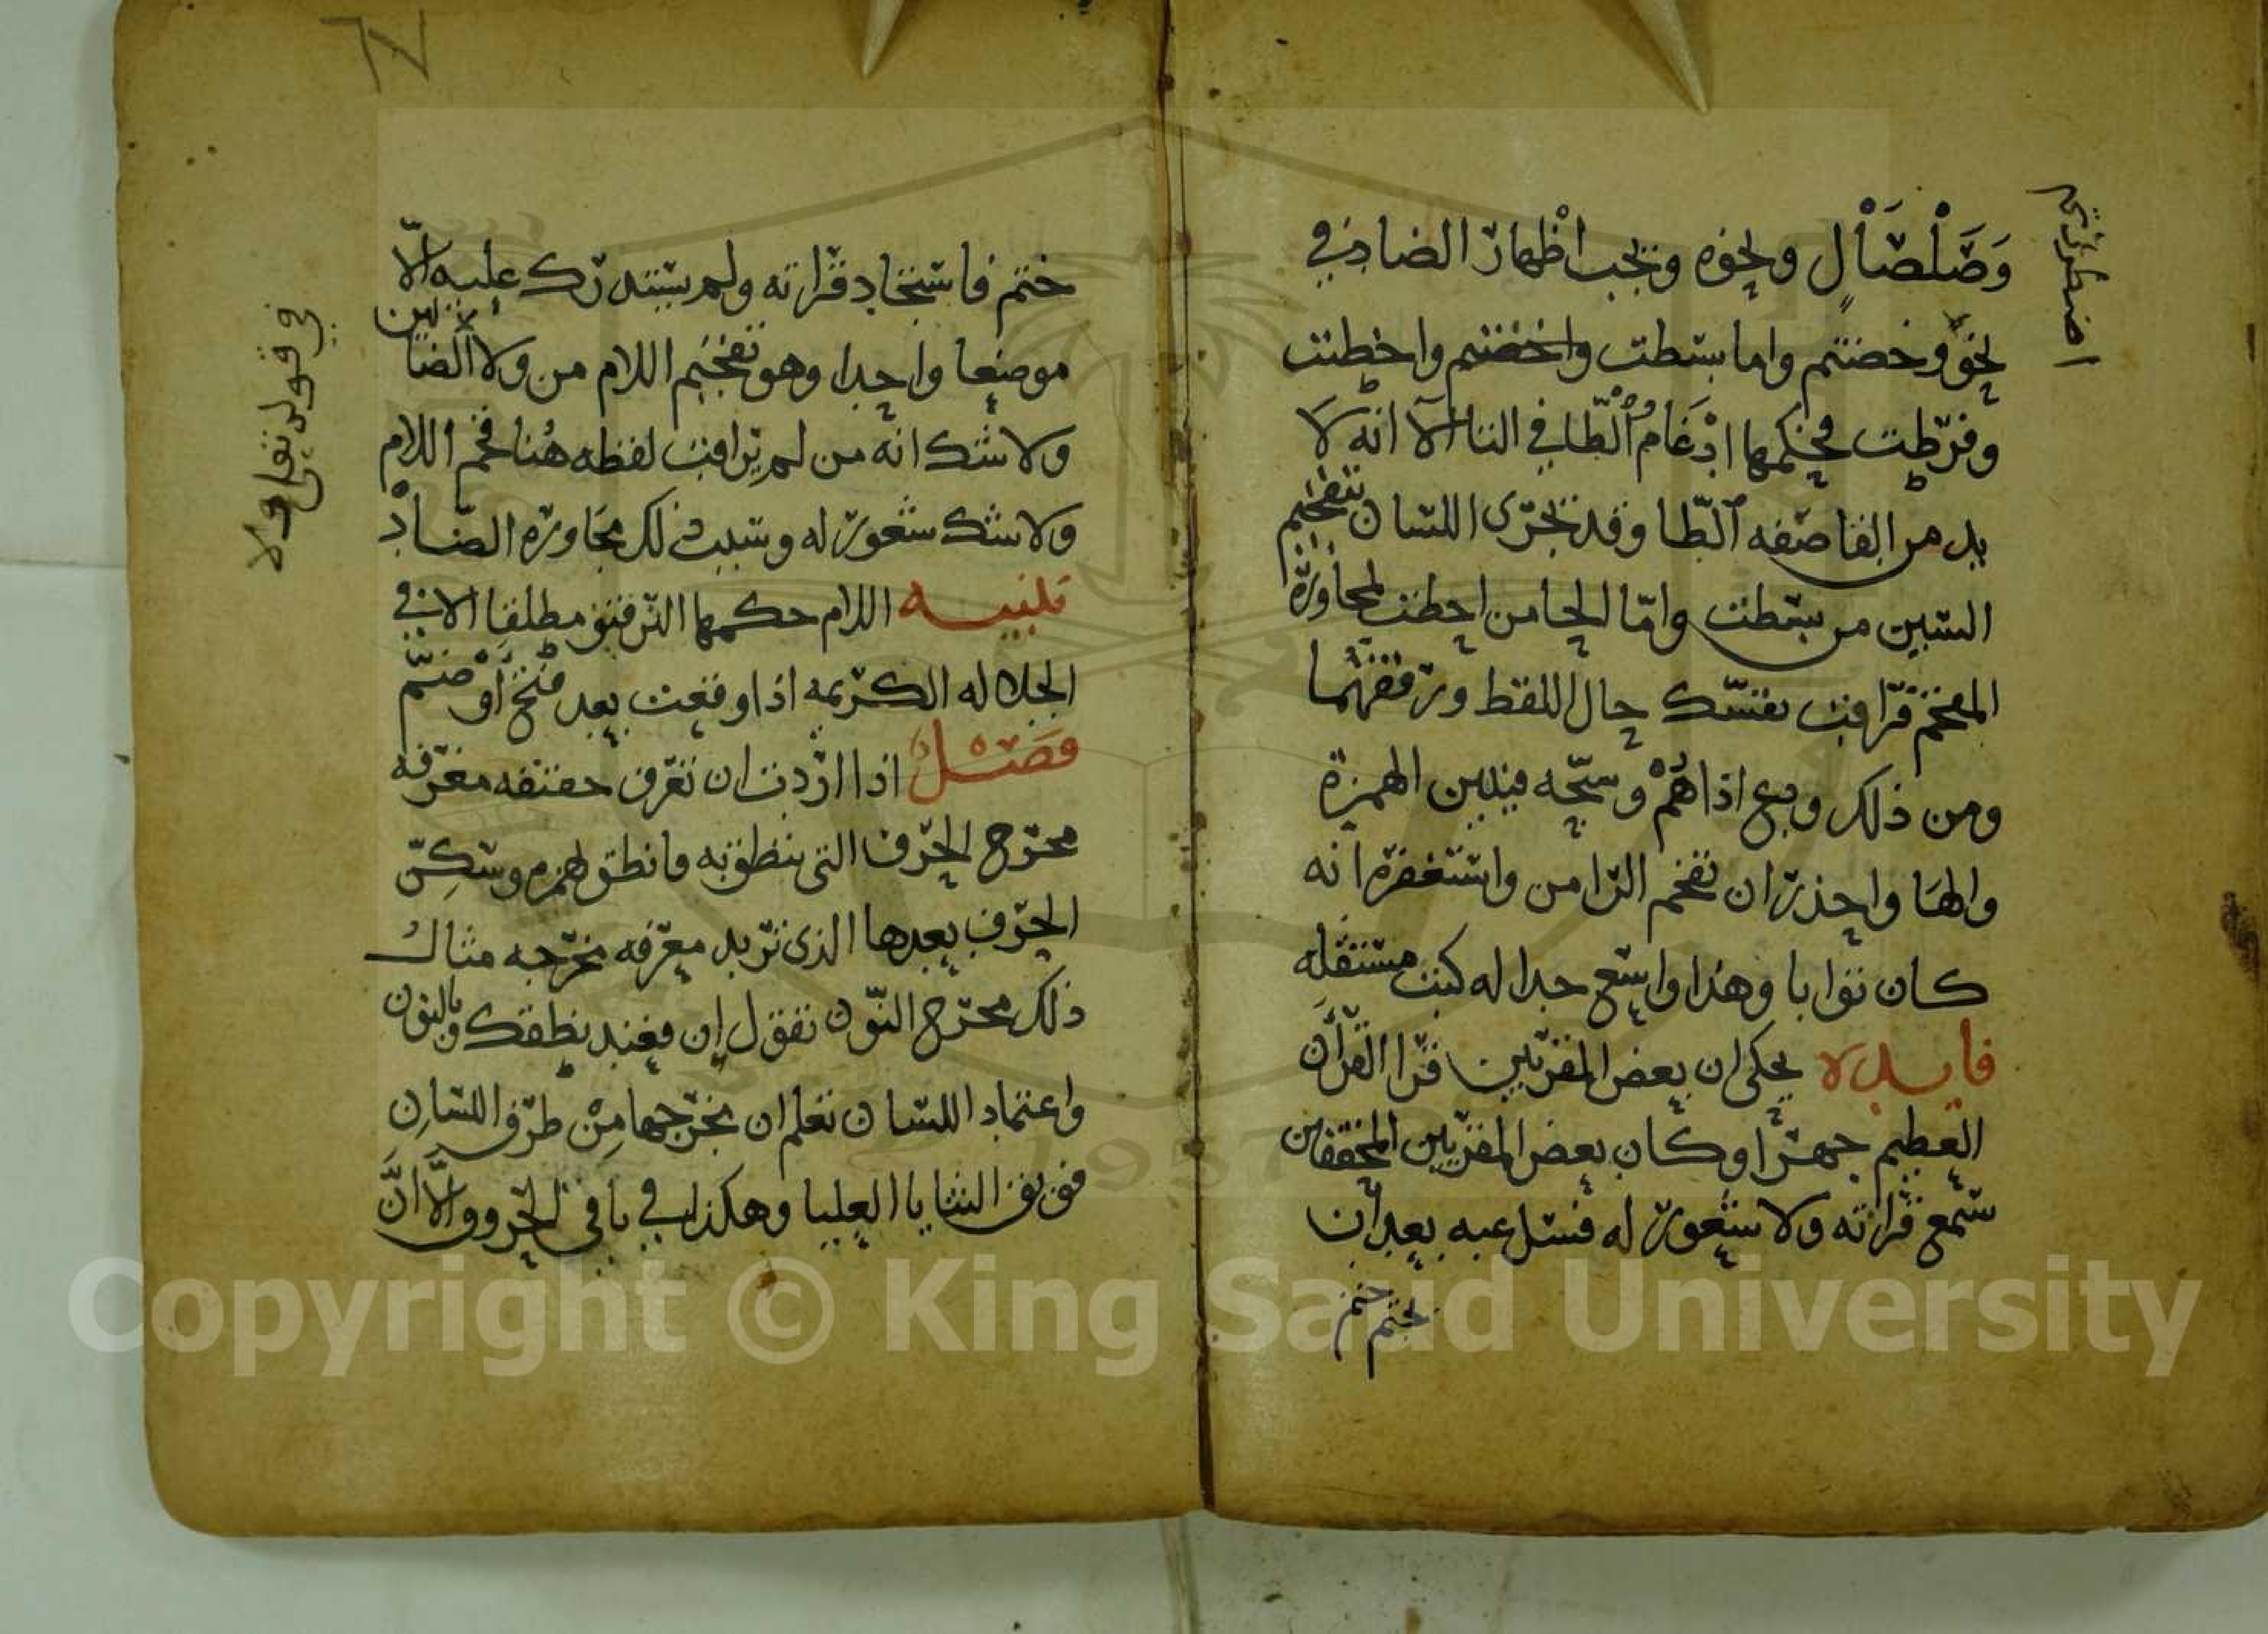 وَصَلْصَالٍ ونحوه ويجب اظهار الضاد في
نحو وخضتم واما بسطت واخضتم واحطت
وفرّطت فحكمها ادْغام الطا في التا الّا انه لا
بد من ابقا صفه الطا وقد يجرى اللسان بتفخيم
السين من بسطت وامّا الحا من احطت لمجاورة
المفخم فراقب نفسك حال اللفظ ورققهما
ومن ذلك ودع اذاهُمْ وسبّحه فيبين الهمزة
والها واحذر ان تفخم الرا من واستغفره انه
كان توابا وهذا واسع جدا له كتب مستقله
فايده يحكى ان بعض المقريين قرا القرآن
العظيم جهرا وكان بعض المقريين المحققين
سمع قراته ولا شعور له فسل عنه بعد ان
ختم
نختم
اضطررتم
ختم فاستجاد قراته ولم يستدرك عليه الّا
موضعا واحدا وهو تفخيم اللام من ولا الضالين
ولا شك انه من لم يراقب لفظه هُنا فخم اللام
ولا شك شعور له وسبب ذلك مجاوره الضّادْ
تنبيه اللام حكمها الترقيق مطلقا الا في
الجلاله الكريمه اذا وقعت بعد فتح او ضمّ
فصل اذا اردت ان تعرف حقيقه معرفه
مخرج الحرف التى ينطق به فانطق بهمزه وسكِّن
الحرف بعدها الذى تريد معرفه مخرجه مثال
ذلك مخرج النّون تقول إن فعند نطقك بالنون
واعتماد اللسان تعلم ان مخرجها مِنْ طرف اللسان
فويق الثنايا العليا وهكذا في باقى الحروف والّا انّ
في قوله تعلى ولا
Copyright © King Saud University
1957